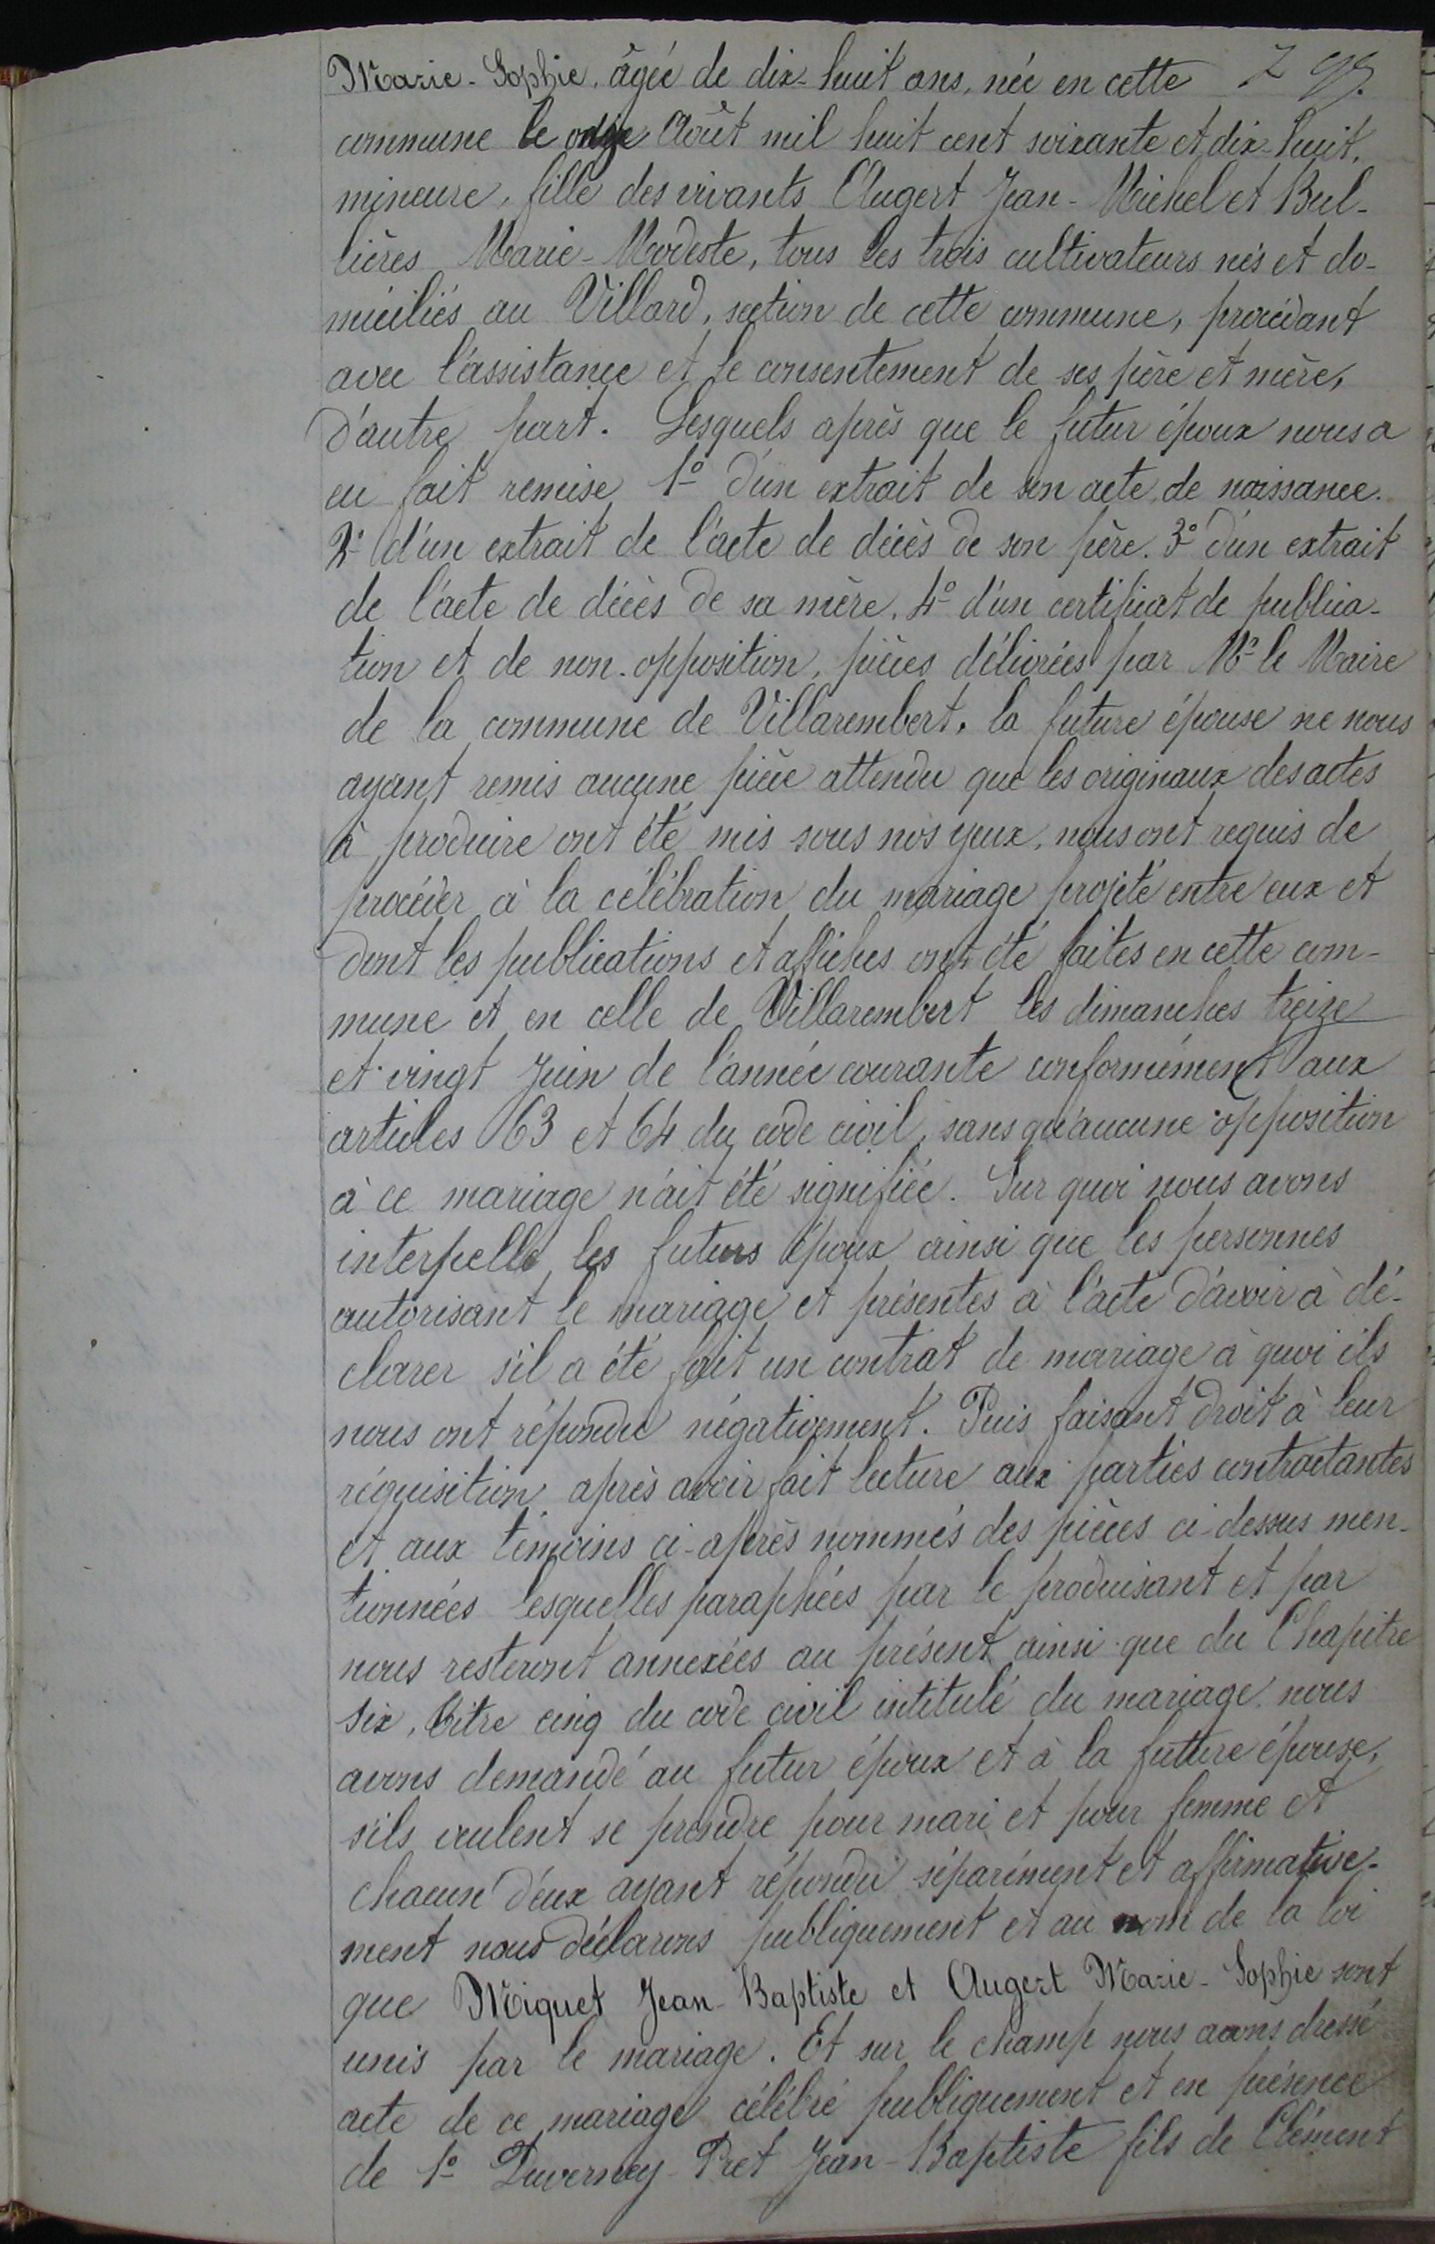 Marie-Sophie, âgée de dix-huit ans, née en cette
commune le onze Août mil huit cent soixante et dix-huit,
mineure, fille des vivants Augert Jean-Michel et Bul-
lières Marie-Modeste, tous les trois cultivateurs nés et do-
miciliés au Villard, section de cette commune, procédant
avec l'assistance et le consentement de ses père et mère,
d'autre part. Lesquels après que le futur époux nous a
eu fait remise 1º d'un extrait de son acte de naissance.
2º d'un extrait de l'acte de décès de son père. 3º d'un extrait
de l'acte de décès de sa mère. 4º d'un certificat de publica-
tion et de non-opposition, pièces délivrées par Mr le Maire
de la commune de Villarembert, la future épouse ne nous
ayant remis aucune pièce attendu que les originaux des actes
à produire ont été mis sous nos yeux, nous ont requis de
procéder à la célébration du mariage projeté entre eux et
dont les publications et affiches ont été faites en cette com-
mune et en celle de Villarembert les dimanches treize
et vingt Juin de l'année courante conformément aux
articles 63 et 64 du code civil, sans qu'aucune opposition
à ce mariage n'ait été signifiée. Sur quoi nous avons
interpellé les futurs époux ainsi que les personnes
autorisant le mariage et présentes à l'acte d'avoir à dé-
clarer s'il a été fait un contrat de mariage à quoi ils
nous ont répondu négativement. Puis faisant droit à leur
réquisition après avoir fait lecture aux parties contractantes
et aux témoins ci-après nommés des pièces ci-dessus men-
tionnées lesquelles paraphées par le produisant et par
nous resteront annexées au présent ainsi que du Chapitre
six, titre cinq du code civil intitulé du mariage nous
avons demandé au futur époux et à la future épouse,
s'ils veulent se prendre pour mari et pour femme et
chacun d'eux ayant répondu séparément et affirmative-
ment nous déclarons publiquement et au nom de la loi
que Miquet Jean-Baptiste et Augert Marie-Sophie sont
unis par le mariage. Et sur le champ nous avons dressé
acte de ce mariage célébré publiquement et en présence
de 1º Duverney-Pret Jean-Baptiste fils de Clément